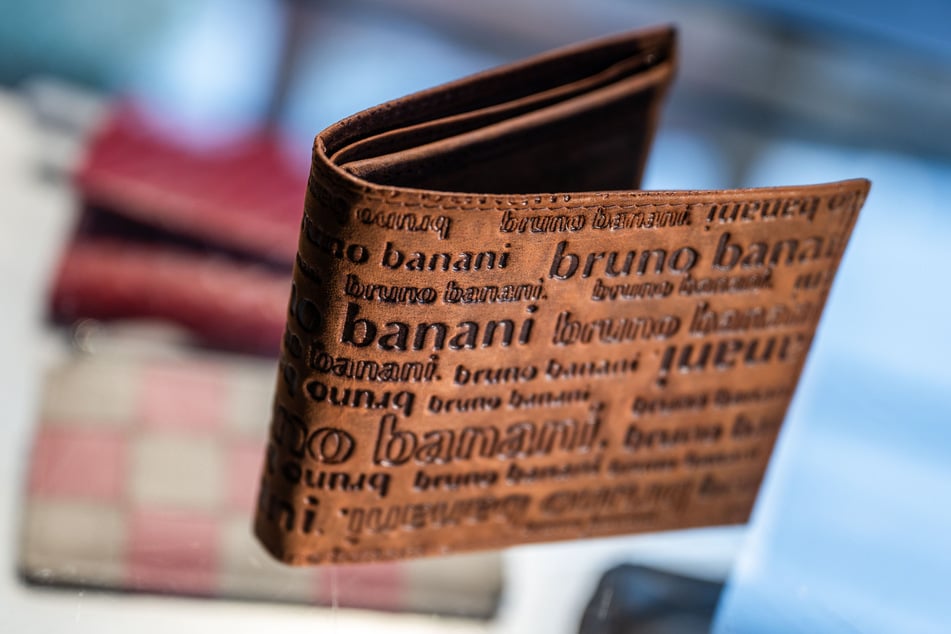 bruno bruno banani. banani
no banani bruno banani
bruno banani. bruno banani.
banani bruno banani
banani. bruno banani banani
bruno bruno banani bruno
no banani. bruno
bruno bruno banani bruno banani
ni. bruno banani